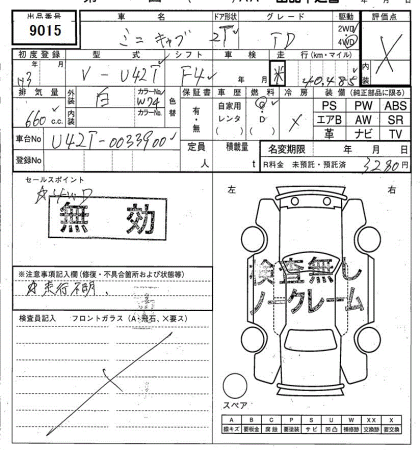 出品番号 車名 ドア形状 グレード 駆動 評価点
9015 ミニキャブ 2T TD 2WD 4WD 外装 内装
初度登録 型式 シフト 車検 走行(km・マイル)
H3 年 月 V-U42T F4 年 月 40,485
排気量 外装 白 カラーNo. W74 色替 保証書 車歴 燃料 冷房 装備(純正部品に限る)
660 c.c. 内装 カラーNo. 有・無 自家用 レンタ G D × PS PW ABS
エアB AW SR
革 ナビ TV
車台No U42T-0033900 定員 人 積載量 t 名変期限 年 月 日
登録No R料金 未預託・預託済 3280円
セールスポイント
無効
左 右
※注意事項記入欄(修復・不具合箇所および状態等)
走行不明.
検査無し
ノークレーム
検査員記入 フロントガラス(A:飛石、×要ス)
スペア
A B C P S U W XX X
線キズ 要鈑金 腐蝕 要塗装 サビ 凹凸 補修跡 交換済 要交換